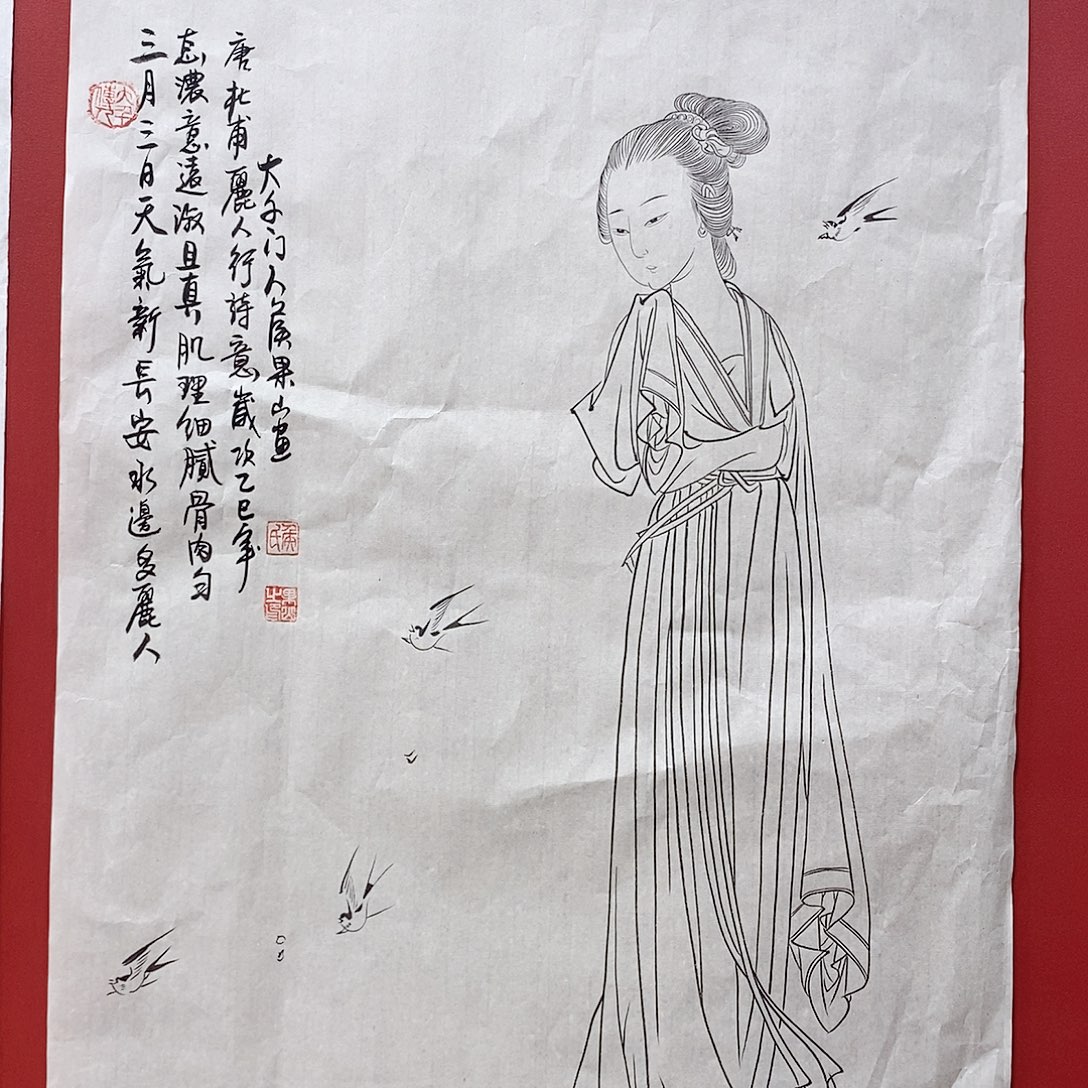 三月三日天氣新長安水邊多麗人
态濃意遠淑且真肌理細膩骨肉匀
唐杜甫麗人行詩意歲次乙巳年
大千门人侯果山畫
侯氏